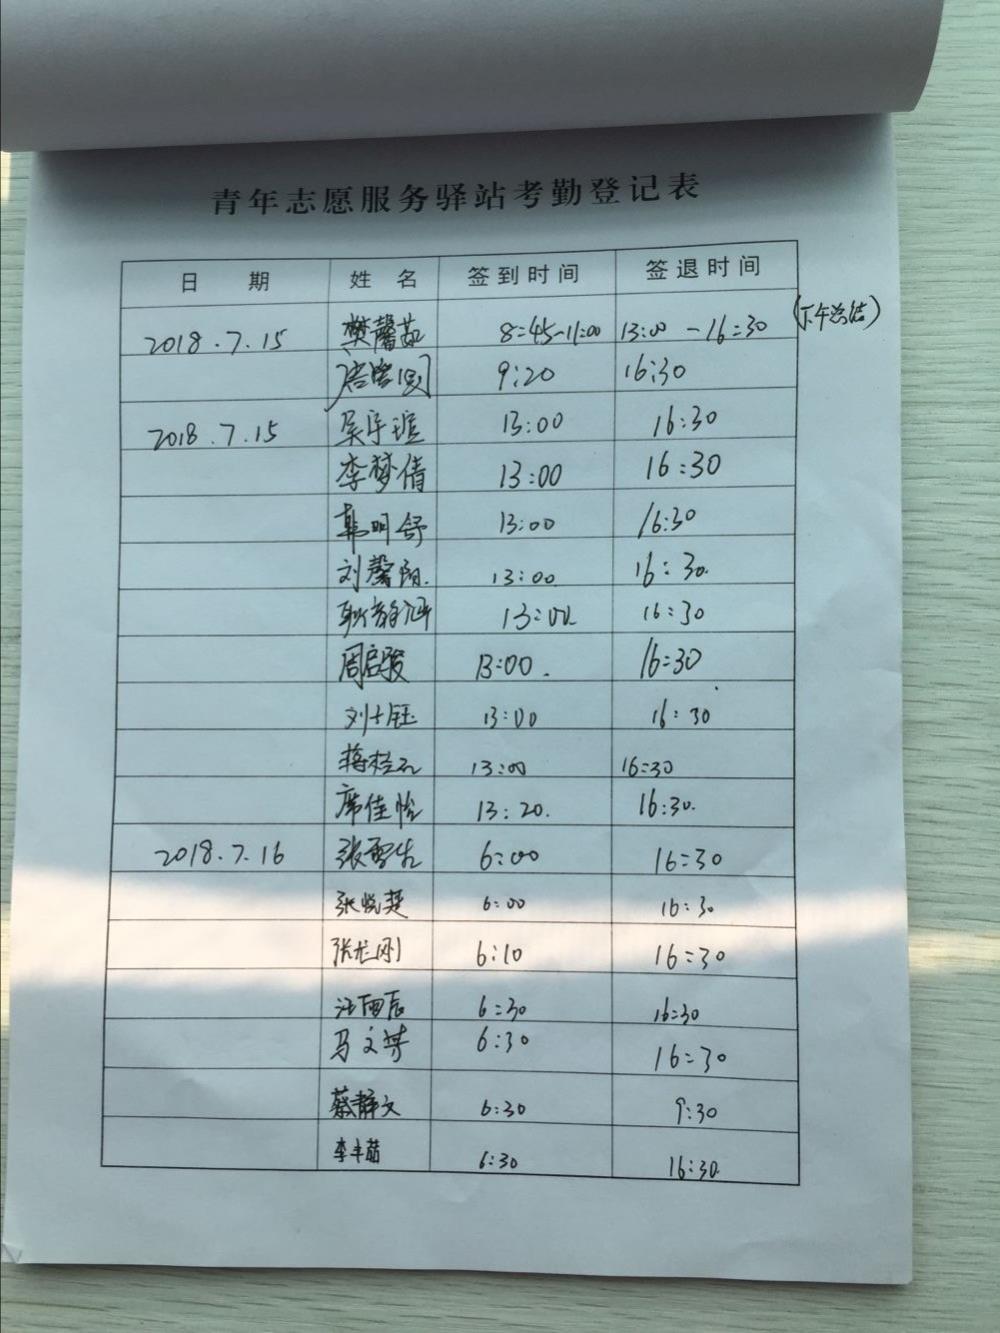 青年志愿服务驿站考勤登记表
日 期 姓 名 签到时间 签退时间
2018.7.15 樊馨茹 8:45-11:00 13:00-16:30 (下午总结)
9:20 16:30
2018.7.15 13:00 16:30
李梦倩 13:00 16:30
韩明舒 13:00 16:30
刘馨阳. 13:00 16:30.
耿 13:00 16:30
周启骏 13:00. 16:30
刘士钰 13:00 16:30
蒋 13:00 16:30
席佳怡 13:20. 16:30.
2018.7.16 张雪 6:00 16:30
张悦 6:00 16:30
张 刚 6:10 16:30
汪雨辰 6:30 16:30
马文 6:30 16:30
蔡静文 6:30 9:30
李丰茹 6:30 16:30.